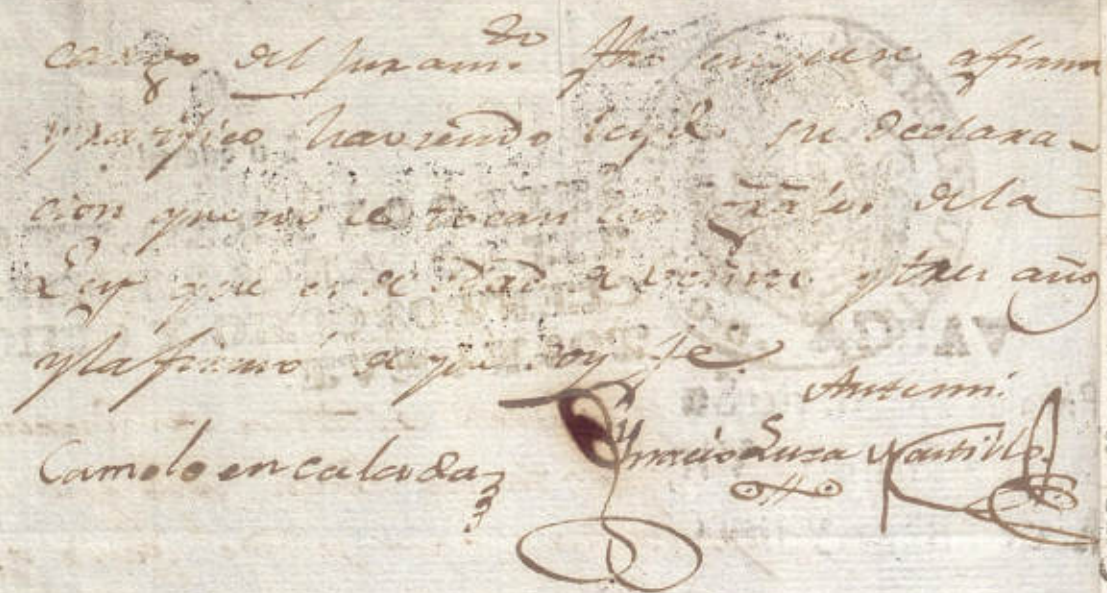 cargo del juram.to fho en que se afirmo
y ratifico haviendo leydo su declara-
cion que no le tocan las de la
Ley que es de edad de veinte y tres años
y la firmó de que doy fe
Antemi.
Camelo encalada
Ygnacio Luza Castillo